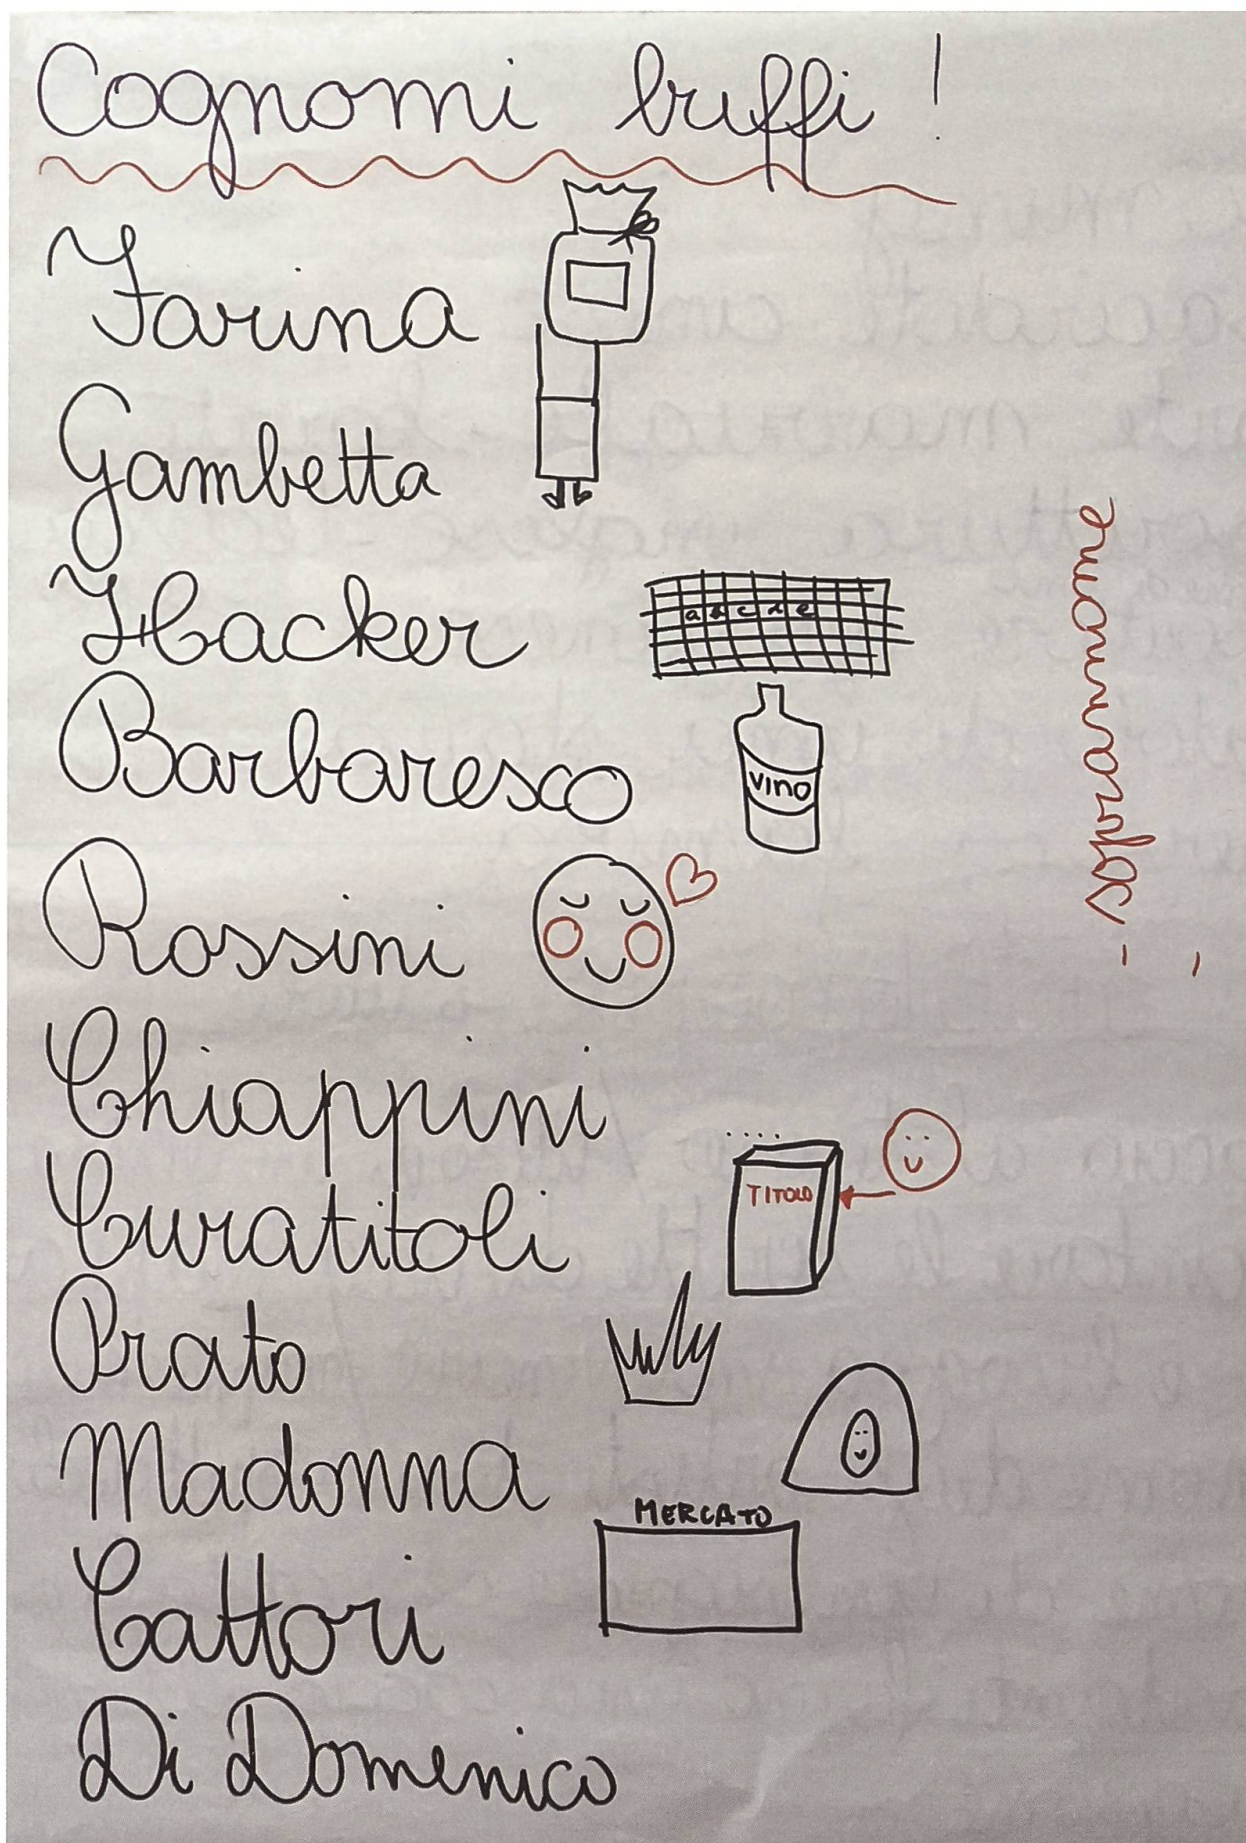 Cognomi buffi!
Farina
Gambetta
Hacker
a b c d e
Barbaresco
VINO
Rossini
Chiappini
Curatitoli
TITOLO
Prato
Madonna
MERCATO
Cattori
Di Domenico
- soprannome
-